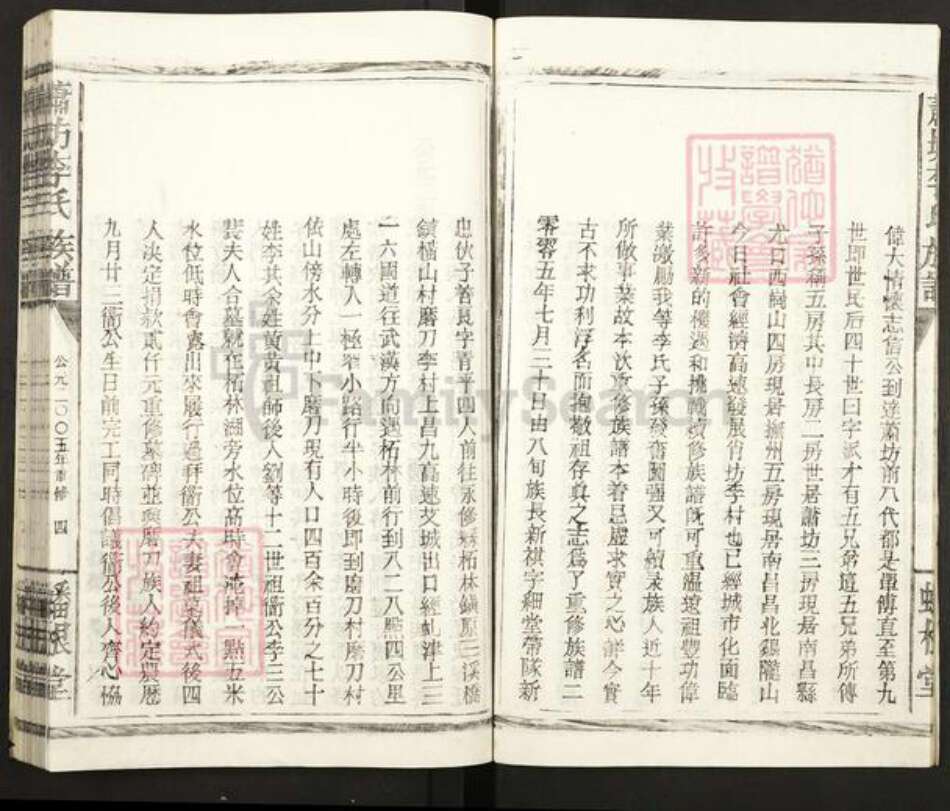 偉大情懷志信公到達蕭坊前八代都是單傳直至第九
世即世氏后四十世曰字派才有五兄弟這五兄弟所傳
子孫稱五房其中長房二房世居蕭坊三房現居南昌縣
尤口西崗山四房現居撫州五房現居南昌昌北 山
今日社會經濟高速發展肖坊李村也已經城市化面臨
許多新的機遇和挑戰續修族譜既可重溫遠祖豐功偉
業激勵我等李氏子孫發奮圖强又可續录族人近十年
所做事業故本次重修族譜本着忌虛求實之心詳今實
古不求功利浮名而抱敬祖存真之志爲了重修族譜二
零零五年七月三十日由八旬族長新祺字細堂帶隊新
忠伙子善良字青平四人前往永修縣柘林鎮原三溪橋
鎮檔山村磨刀李村上昌九高速艾城出口經虬津上三
一六國道往武漢方向過柘林前行到八二八點四公里
處左轉入一極窄小路行半小時後即到磨刀村磨刀村
依山傍水分上中下磨刀現有人口四百余百分之七十
姓李其余姓黄黄祖師後人劉等十二世祖衙公李三公
裴夫人合墓就在柘林湖旁水位高時會淹掉一點五米
水位低時會露出來履行過拜衙公夫妻祖墓儀式後四
人决定捐款貳仟元重修墓碑並與磨刀族人約定農歷
九月廿二衙公生日前完工同時倡議衙公後人齊心協
蕭坊李氏 族譜
公元二〇〇五年重修 四
蟠根堂
FamilySearch